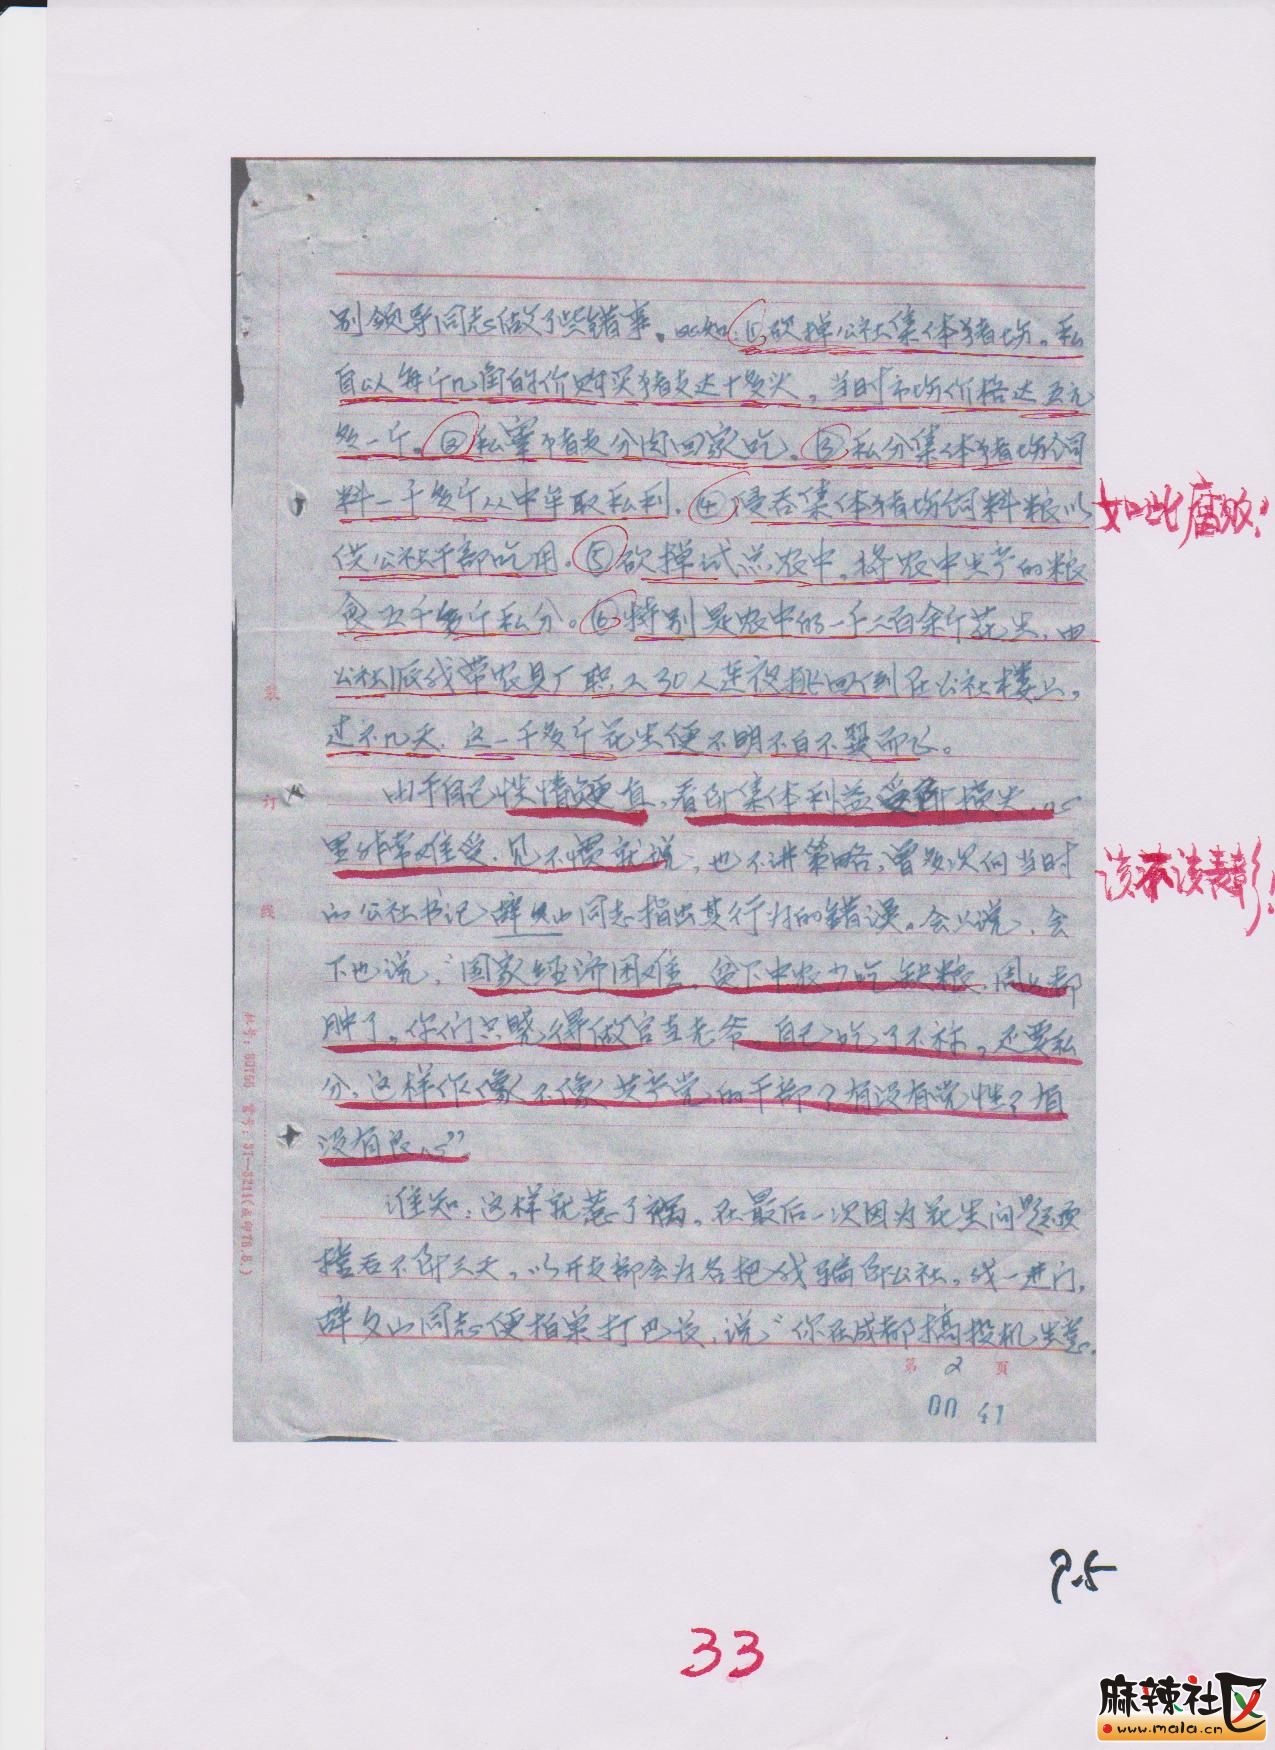 别领导同志做了些错事。比如：①砍掉公社集体猪场。私
自以每斤几角的价购买猪支达十多头，当时市场价格达五元
多一斤。②私宰猪支分肉回家吃。③私分集体猪场饲
料一千多斤从中牟取私利。④侵吞集体猪场饲料粮以
供公社干部吃用。⑤砍掉试点农中，将农中生产的粮
食五千多斤私分。⑥特别是农中的一千二百余斤花生，由
公社派我带农具厂职工30人连夜挑回到在公社楼上，
过不几天，这一千多斤花生便不明不白不翼而飞。
由于自己性情硬直，看到集体利益受到损失，心
里非常难受，见不惯就说，也不讲策略，曾多次向当时
的公社书记薛文山同志指出其行为的错误。会上说，会
下也说，“国家经济困难，贫下中农少吃缺粮，周身都
肿了。你们只晓得做官当老爷，自己吃了不称，还要私
分，这样作像不像共产党的干部？有没有党性？有
没有良心”
谁知：这样就惹了祸。在最后一次因为花生问题顶
撞后不到三天，以开支部会为名把我骗到公社。我一进门，
薛文山同志便拍桌打巴掌，说“你在成都搞投机生意。
第2页
00 41
装
订
线
如此腐败！
该不该表彰！
P.5
33
麻辣社区
www.mala.cn